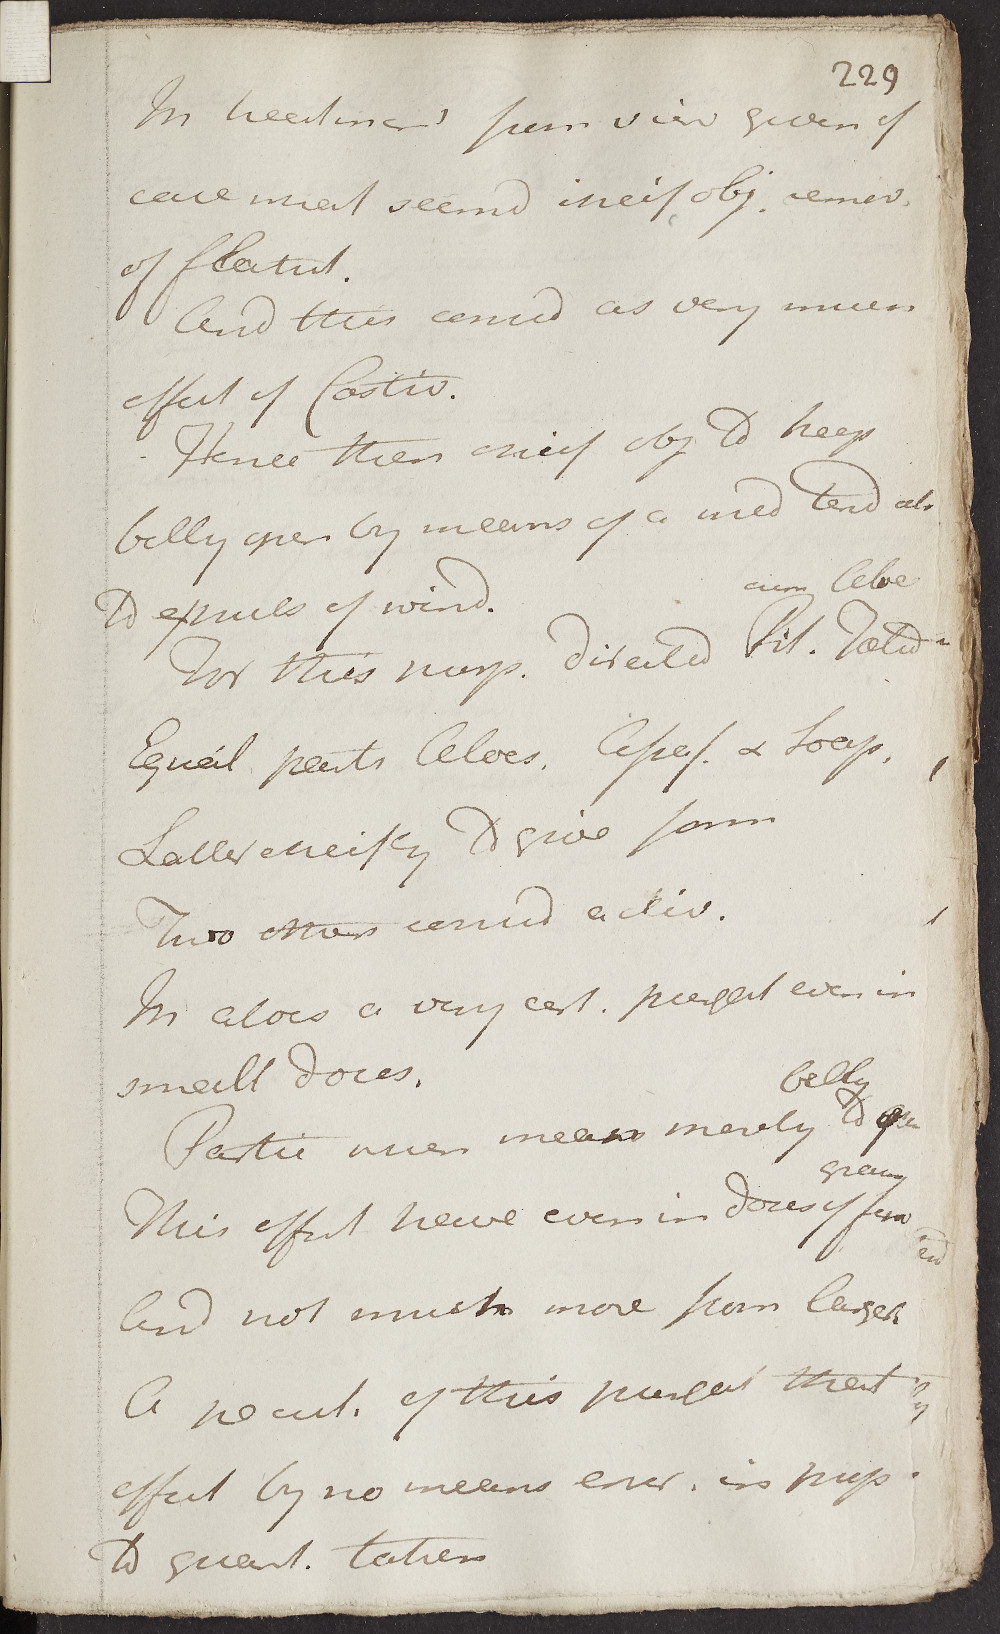 229
In treatment from view given of
case what seemd chief obj. remov.
of flatul.
And this consid as very much
effect of Costiv.
Hence then chief obj to keep
belly open by means of a med tend also
to expuls of wind.
cum Aloe
For this purp. directed Pil. Fœtid
Equal parts Aloes. Asaf. & Soap.
Latter chiefly to give form
Two others consid activ.
In aloes a very cert. purgat even in
small doses.
belly
Partic when mean merely to open
grains
This effect have even in doses of few
And not much more from larger
A peculi. of this purgat that
effect by no means encr. in prop
to quant. taken